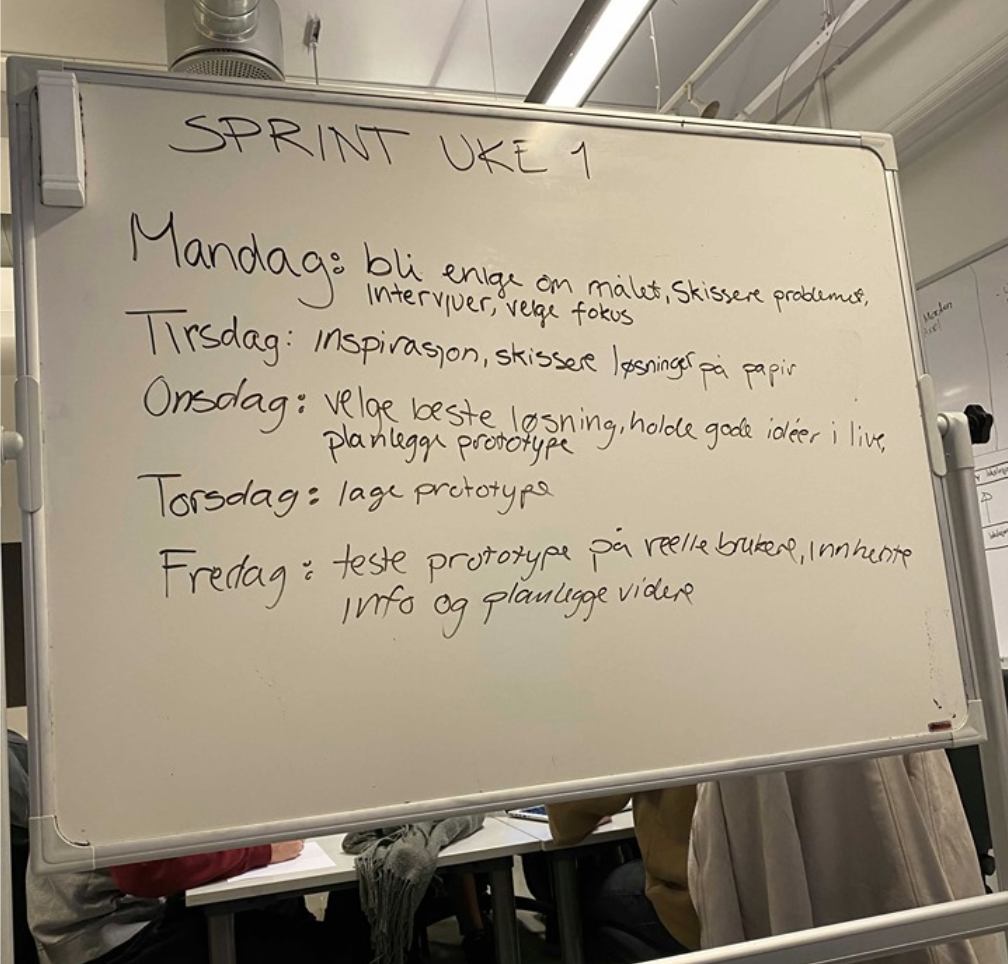 SPRINT UKE 1
Mandag: bli enige om målet, Skissere problemet,
Intervjuer, velge fokus
Tirsdag: inspirasjon, skissere løsninger på papir
Onsdag: velge beste løsning, holde gode idéer i live,
planlegge prototype
Torsdag: lage prototype
Fredag: teste prototype på reelle brukere, innhente
info og planlegge videre